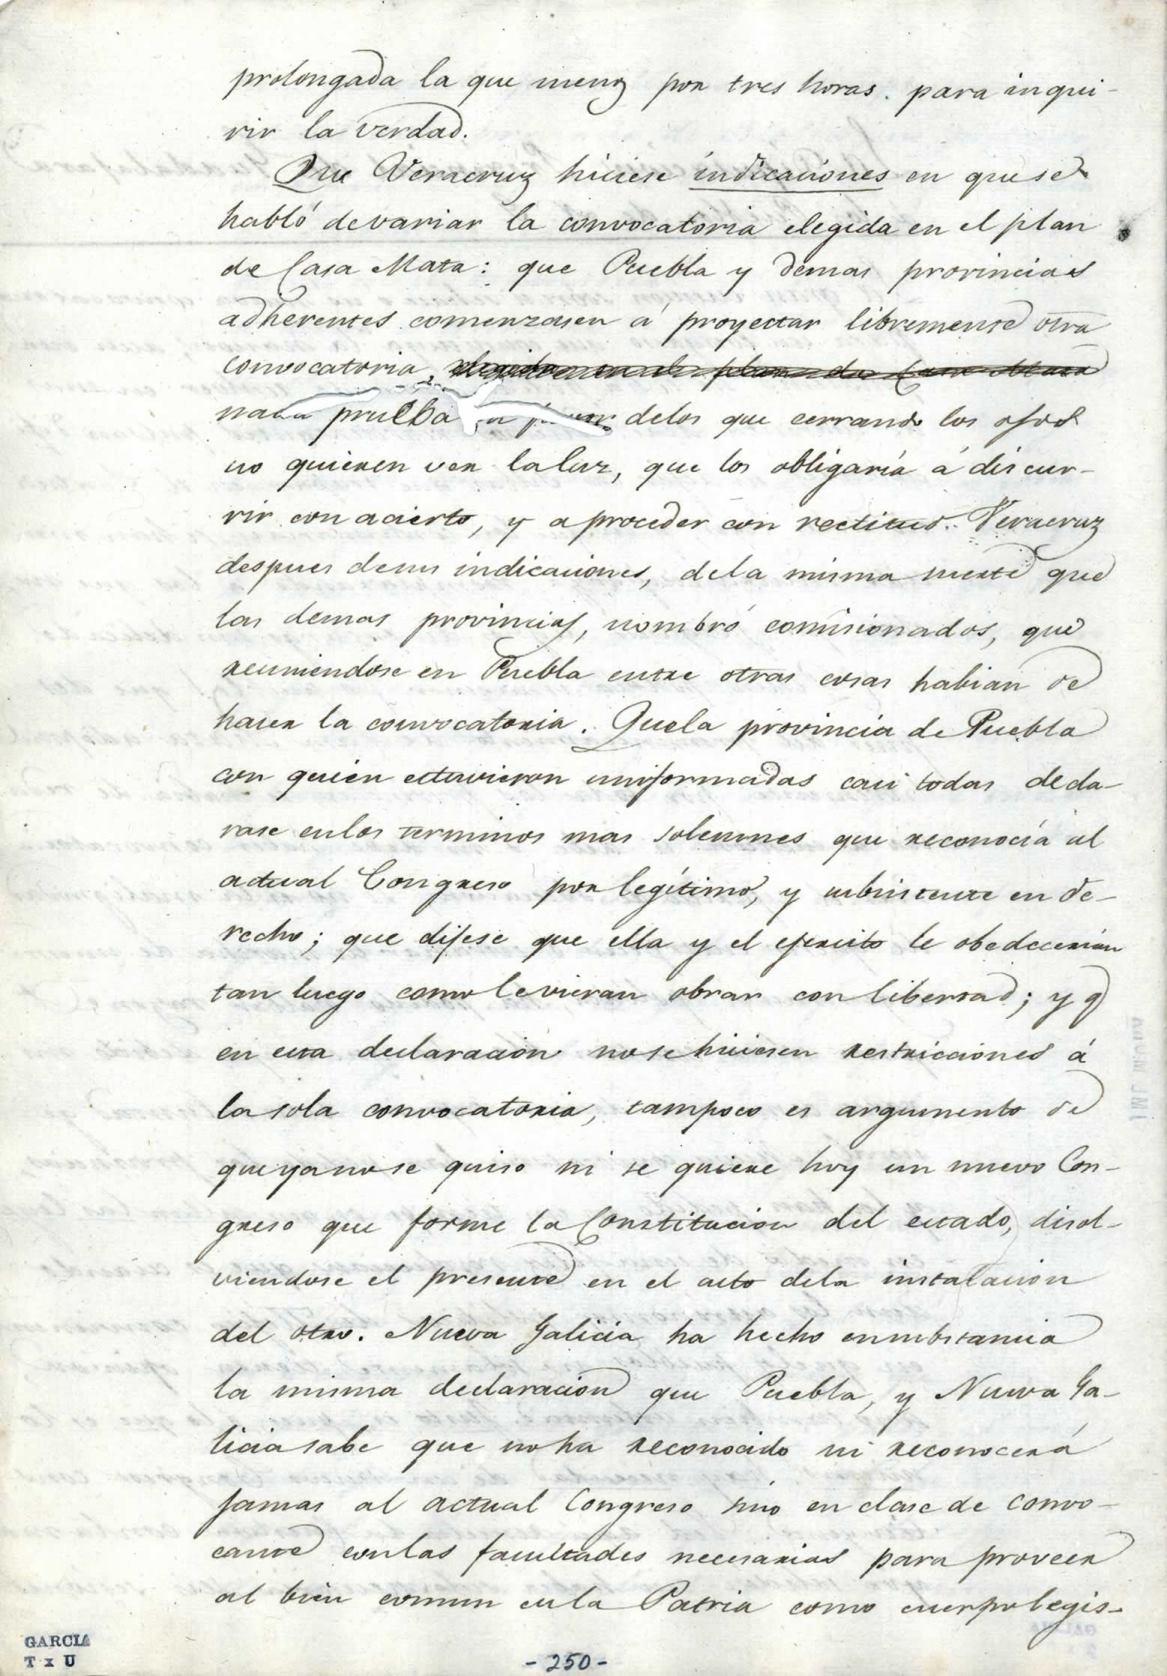 prolongada la que menos por tres horas. para inqui-
rir la verdad.
Que Veracruz hiciese indicaciones en que se
habló de variar la convocatoria elegida en el plan
de Casa Mata: que Puebla y demas provincias
adherentes comenzasen á proyectar libremente otra
convocatoria, elegida en el plan de Casa Mata
nada prueba en favor delos que cerrando los ojos
no quieren ver la luz, que los obligaría á discur-
rir con acierto, y a proceder con rectitud. Veracruz
despues de sus indicaciones, dela misma suerte que
las demas provincias, nombró comisionados, que
reuniendose en Puebla entre otras cosas habian de
hacer la convocatoria. Que la provincia de Puebla
con quien estuvieron uniformadas casi todas decla-
rase en los terminos mas solemnes que reconocía al
actual Congreso por legítimo, y subsistente en de-
recho; que dijese que ella y el ejercito le obedecerian
tan luego como le vieran obrar con libertad; y q
en esta declaracion no se hiciesen restricciones á
la sola convocatoria, tampoco es argumento de
que ya no se quiso ni se quiere hoy un nuevo Con-
greso que forme la Constitucion del estado, disol-
viendose el presente en el acto dela instalacion
del otro. Nueva Galicia ha hecho en substancia
la misma declaracion que Puebla, y Nueva Ga-
licia sabe que no ha reconocido ni reconocerá
jamas al actual Congreso sino en clase de convo-
cante con las facultades necesarias para proveer
al bien comun en la Patria como cuerpo legis-
GARCIA
T x U
- 250 -